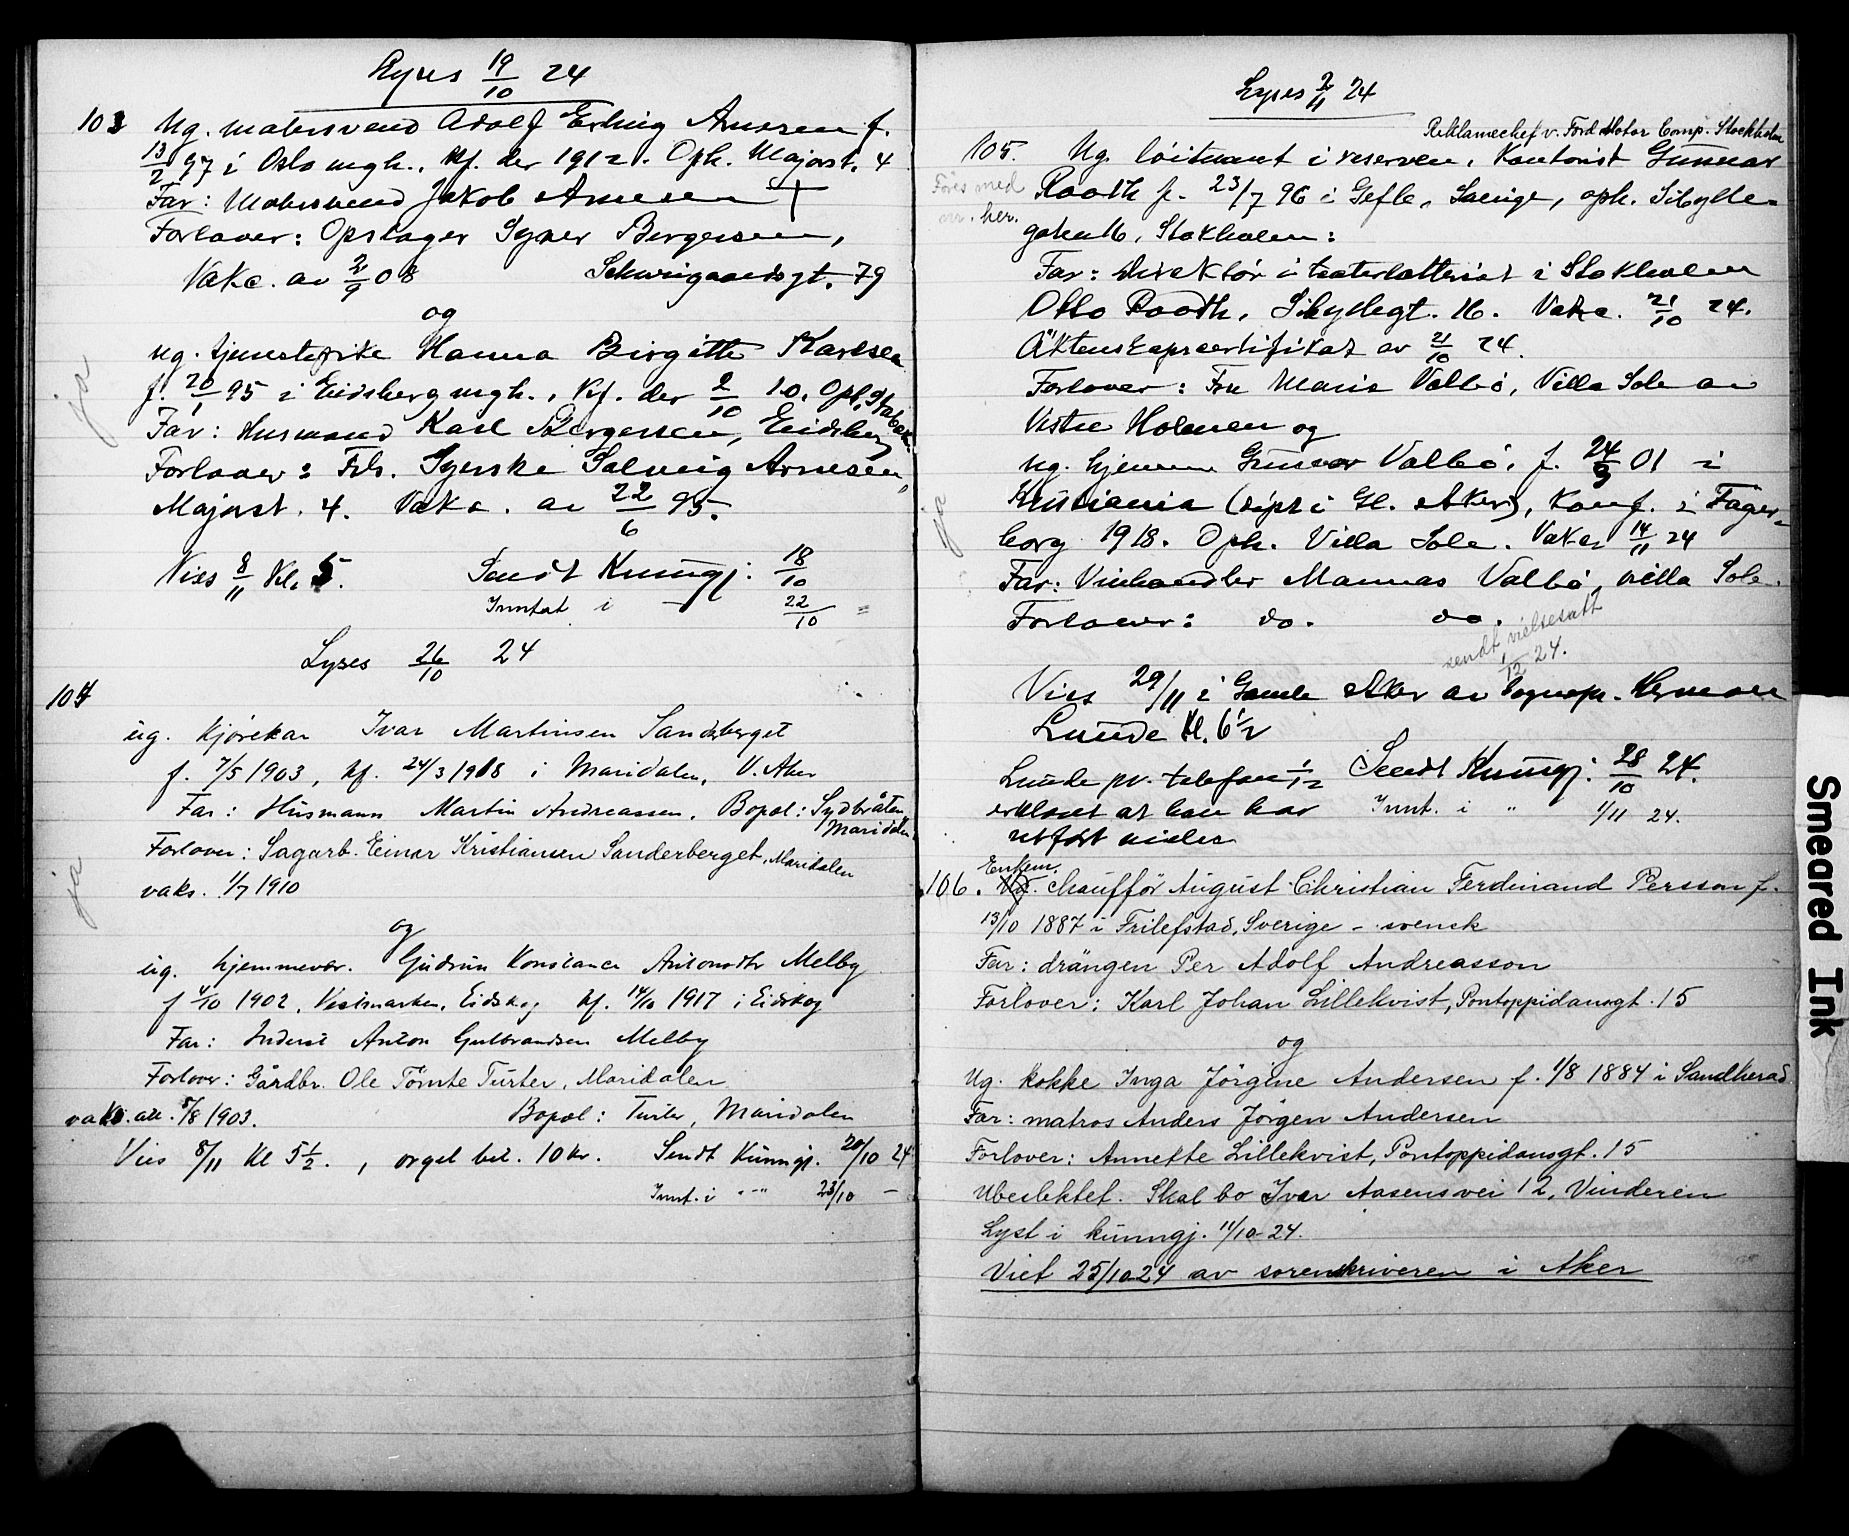 Lyses 19/10 24
103 Ug. malersvend Adolf Erling Arnesen f.
13/2 97 i Oslo mgh., kf. der 1912. Oph. Majorst. 4
Far: Malersvend Jakob Arnesen †
Forlover: Opsager Syver Bergersen,
Vakc. av 2/9 08 Schweigaardsgt. 79
og
ug. tjenestepike Hanna Birgitte Karlsen
f. 20/1 95 i Eidsberg mgh., kf. der 2/10 10. Oph.
Far: Husmand Karl Bergersen, Eidsberg
Forlover: Frk. Synske Solveig Arnesen,
Majorst. 4. Vakc. av 22/6 95.
Vies 8/11 Kl. 5. Sendt Kunngj. 18/10
Inntat i — 22/10 =
Lyses 26/10 24
ja
104
ug. kjørekar Ivar Martinsen Sanderberget
f. 7/5 1903, kf. 24/3 1918 i Maridalen, V. Aker
Far: Husmann Martin Andreassen. Bopæl: Sydbråten, Maridalen
Forlover: Sagarb. Einar Kristiansen Sanderberget, Maridalen
vaks. 1/7 1910
ja
og
ug. hjemmevær. Gudrun Konstance Antonsdtr Melby
f 4/10 1902, Vestmarken, Eidskog kf. 14/10 1917 i Eidskog
Far: Inderst Anton Gulbrandsen Melby
Forlover: Gårdbr. Ole Tømte Turter, Maridalen
vaks. att. 5/8 1903. Bopæl: Turter, Maridalen
Vies 8/11 Kl 5 1/2. , orgel bet. 10 kr. Sendt Kunngj. 20/10 24
Innt. i " " 23/10 —
Lyses 2/11 24
Reklamechef v. Ford Motor Comp. Stockholm
105. Ug. løitnant i reserven, Kontorist Gunnar
Føres med
nr. her.
Raoth f. 23/7 96 i Gefle, Sverige, oph. Sibylle-
gatan 16, Stokholm:
Far: Direktør i teaterlotteriet i Stokholm
Otto Raoth, Sibyllegt. 16. Vakc. 21/10 24.
Äktenskapscertifikat av 21/10 24.
Forlover: Fru Maria Valbø, Villa Sole av
Vestre Holmen og
ug. hjemme Gunvor Valbø, f. 24/9 01 i
Kristiania (døpt i Gl. Aker), konf. i Fager-
borg 1918. Oph. Villa Sole. Vakc. 14/11 24
ja
Far: Vinhandler Mannas Valbø, villa Sole.
Forlover: do. do.
sendt vielsesatt
1/12 24.
Vies 29/11 i Gamle Aker av Sognepr. Herman
Lunde Kl. 6 1/2
Lunde pr. telefon 1/12 Sendt Kunngj. 28/10 24.
erklært at han har Innt. i " 1/11 24.
utført vielsen
Enkem.
106. Ug. chauffør August Christian Ferdinand Persson f.
13/10 1887 i Frilefstad, Sverige - svensk
Far: drängen Per Adolf Andreasson
Forlover: Karl Johan Lillekvist, Pontoppidansgt. 15
og
Ug. kokke Inga Jørgine Andersen f. 1/8 1884 i Sandherad
Far: matros Anders Jørgen Andersen
Forlover: Annette Lillekvist, Pontoppidansgt. 15
Ubeslektet. Skal bo Ivar Aasens vei 12, Vinderen
Lyst i kunngj. 11/10-24.
Viet 25/10-24 av sorenskriveren i Aker
Smeared Ink